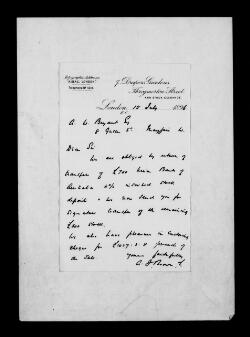 Telegraphic Address
London
7 Drapers Gardens,
Throgmorton Street,
London, 15 July 1896
A. W. Bryant Esq
8 Queen St. Mayfair W.
Dear Sir
We are obliged by return of
transfer of £700 Union Bank of
Australia 4% inscribed stock
deposit & we now send you for
signature transfer of the remaining
stock.
We also have pleasure in enclosing
cheque for proceeds of
the sale.
yours faithfully